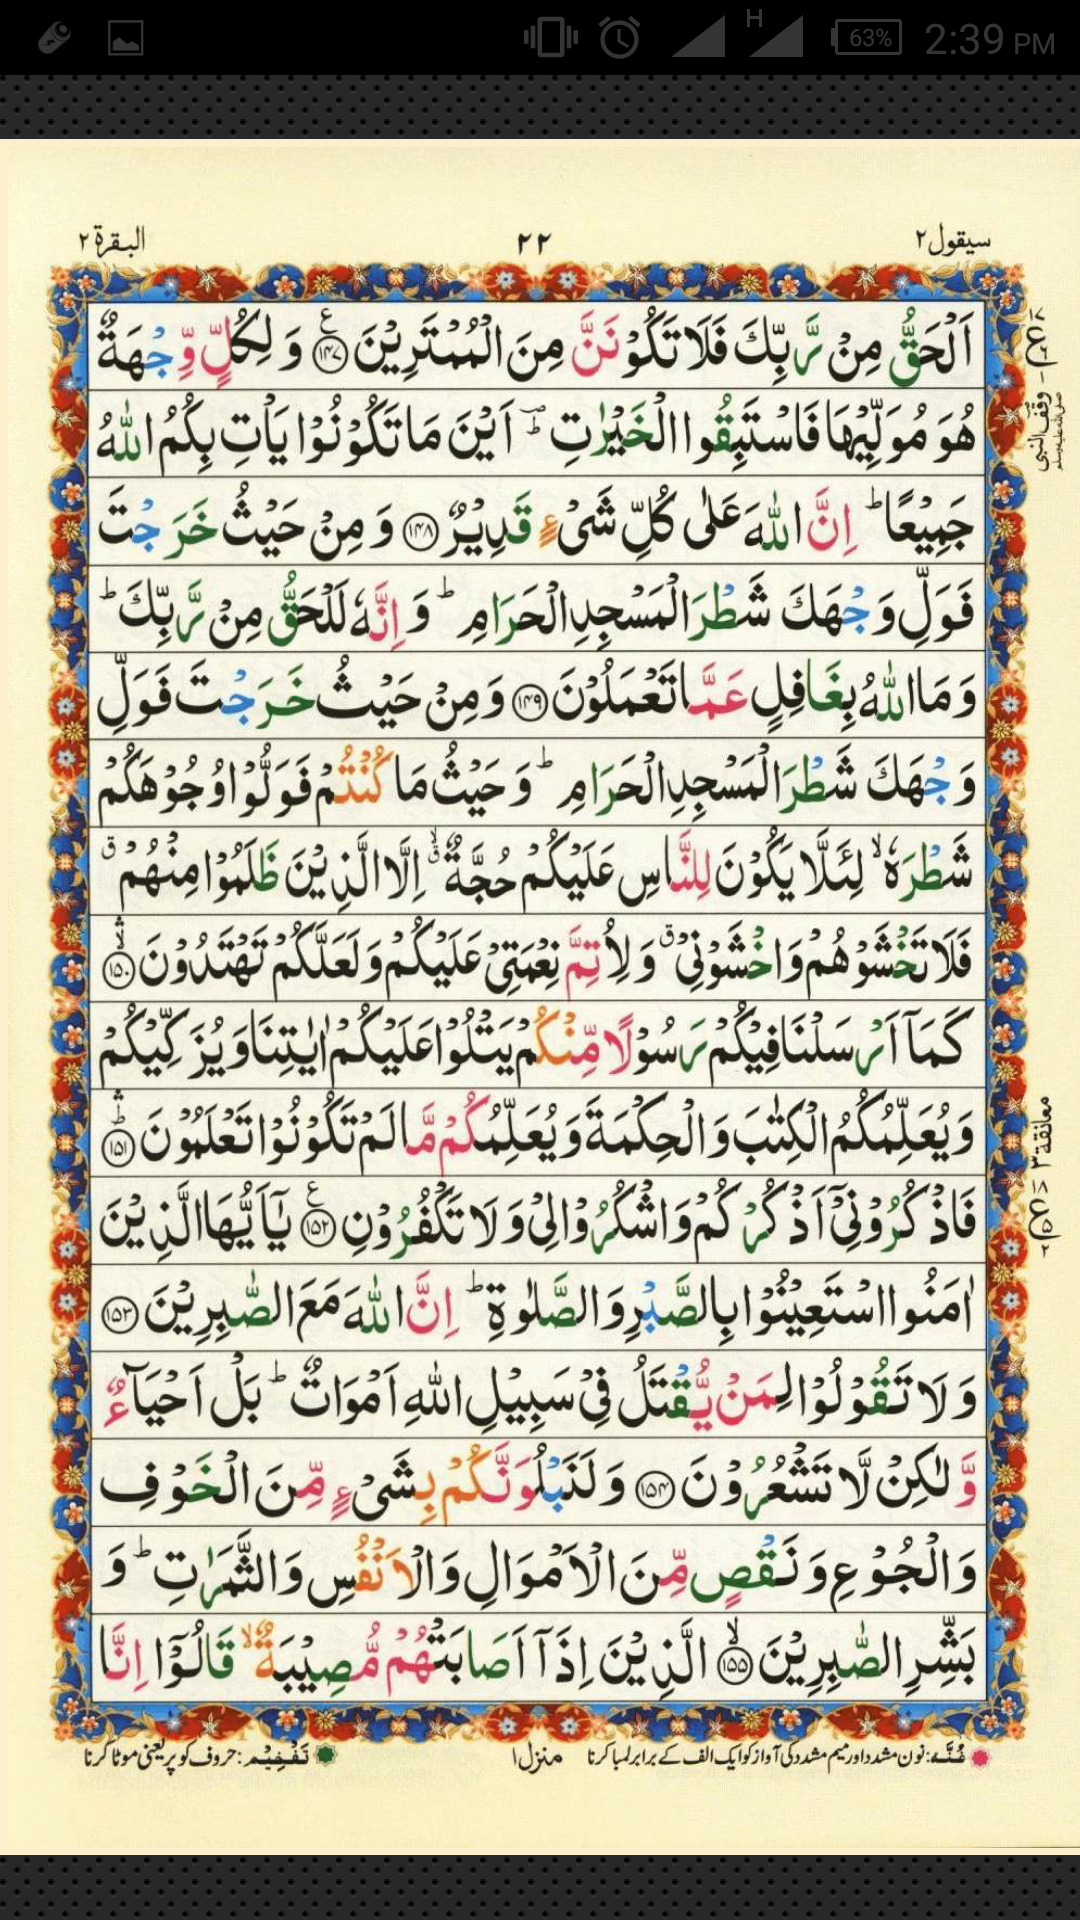 63% 2:39 PM
H
سيقول ٢ ٢٢ البقرة ٢
اَلْحَقُّ مِنْ رَّبِّكَ فَلَا تَكُوْنَنَّ مِنَ الْمُمْتَرِيْنَ ۧ﴿۱۴۷﴾ وَ لِكُلٍّ وِّجْهَةٌ
هُوَ مُوَلِّيْهَا فَاسْتَبِقُوا الْخَيْرٰتِ ؕ اَيْنَ مَا تَكُوْنُوْا يَاْتِ بِكُمُ اللّٰهُ
جَمِيْعًا ؕ اِنَّ اللّٰهَ عَلٰى كُلِّ شَىْءٍ قَدِيْرٌ ﴿۱۴۸﴾ وَ مِنْ حَيْثُ خَرَجْتَ
فَوَلِّ وَجْهَكَ شَطْرَ الْمَسْجِدِ الْحَرَامِ ؕ وَ اِنَّهٗ لَلْحَقُّ مِنْ رَّبِّكَ ؕ
وَ مَا اللّٰهُ بِغَافِلٍ عَمَّا تَعْمَلُوْنَ ﴿۱۴۹﴾ وَ مِنْ حَيْثُ خَرَجْتَ فَوَلِّ
وَجْهَكَ شَطْرَ الْمَسْجِدِ الْحَرَامِ ؕ وَ حَيْثُ مَا كُنْتُمْ فَوَلُّوْا وُجُوْهَكُمْ
شَطْرَهٗ ۙ لِئَلَّا يَكُوْنَ لِلنَّاسِ عَلَيْكُمْ حُجَّةٌ ۙۗ اِلَّا الَّذِيْنَ ظَلَمُوْا مِنْهُمْ ۗ
فَلَا تَخْشَوْهُمْ وَاخْشَوْنِىْ ۗ وَ لِاُتِمَّ نِعْمَتِىْ عَلَيْكُمْ وَ لَعَلَّكُمْ تَهْتَدُوْنَ ۛ﴿۱۵۰﴾
كَمَاۤ اَرْسَلْنَا فِيْكُمْ رَسُوْلًا مِّنْكُمْ يَتْلُوْا عَلَيْكُمْ اٰيٰتِنَا وَ يُزَكِّيْكُمْ
وَ يُعَلِّمُكُمُ الْكِتٰبَ وَ الْحِكْمَةَ وَ يُعَلِّمُكُمْ مَّا لَمْ تَكُوْنُوْا تَعْلَمُوْنَ ؕۛ﴿۱۵۱﴾
فَاذْكُرُوْنِىْۤ اَذْكُرْكُمْ وَ اشْكُرُوْا لِىْ وَ لَا تَكْفُرُوْنِ ۧ﴿۱۵۲﴾ يٰۤاَيُّهَا الَّذِيْنَ
اٰمَنُوا اسْتَعِيْنُوْا بِالصَّبْرِ وَ الصَّلٰوةِ ؕ اِنَّ اللّٰهَ مَعَ الصّٰبِرِيْنَ ﴿۱۵۳﴾
وَ لَا تَقُوْلُوْا لِمَنْ يُّقْتَلُ فِىْ سَبِيْلِ اللّٰهِ اَمْوَاتٌ ؕ بَلْ اَحْيَآءٌ
وَّ لٰكِنْ لَّا تَشْعُرُوْنَ ﴿۱۵۴﴾ وَ لَنَبْلُوَنَّكُمْ بِشَىْءٍ مِّنَ الْخَوْفِ
وَ الْجُوْعِ وَ نَقْصٍ مِّنَ الْاَمْوَالِ وَ الْاَنْفُسِ وَ الثَّمَرٰتِ ؕ وَ
بَشِّرِ الصّٰبِرِيْنَ ۙ﴿۱۵۵﴾ الَّذِيْنَ اِذَاۤ اَصَابَتْهُمْ مُّصِيْبَةٌ ۙ قَالُوْۤا اِنَّا
وقف النبی
معانقة ٣
غُنَّه: نون مشدد اور میم مشدد کی آواز کو ایک الف کے برابر لمبا کرنا منزل ۱ تَفْخِيْم: حروف کو پُر یعنی موٹا کرنا